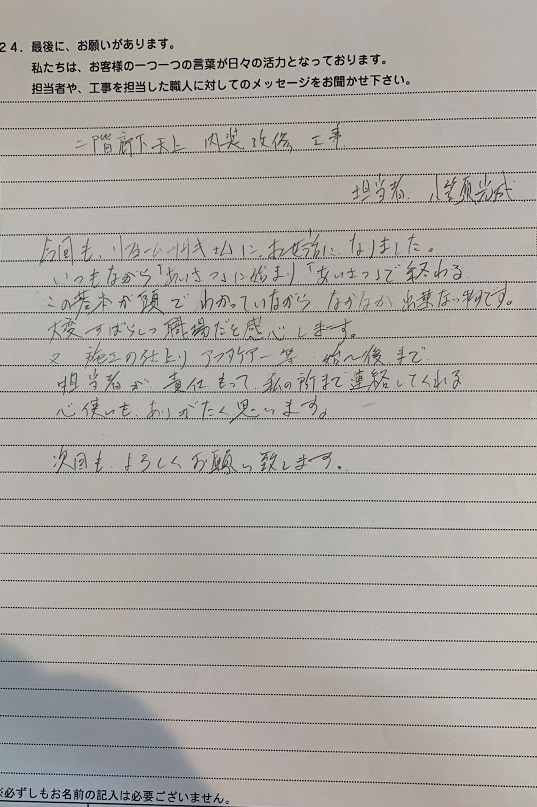 24. 最後に、お願いがあります。
私たちは、お客様の一つ一つの言葉が日々の活力となっております。
担当者や、工事を担当した職人に対してのメッセージをお聞かせ下さい。
二階廊下天上 内装改修工事
担当者 小笠原
今回も、リフォーム に、お世話になりました。
いつもながら「あいさつ」に始まり「あいさつ」で終わる
この基本が頭でわかっていながら なかなか出来ない事です。
大変すばらしい職場だと感心します。
又 施工の仕上り アフタケアー等 後まで
担当者が 責任もって 私の所まで連絡してくれる
心使いも、ありがたく思います。
次回も よろしくお願い致します。
※必ずしもお名前の記入は必要ございません。